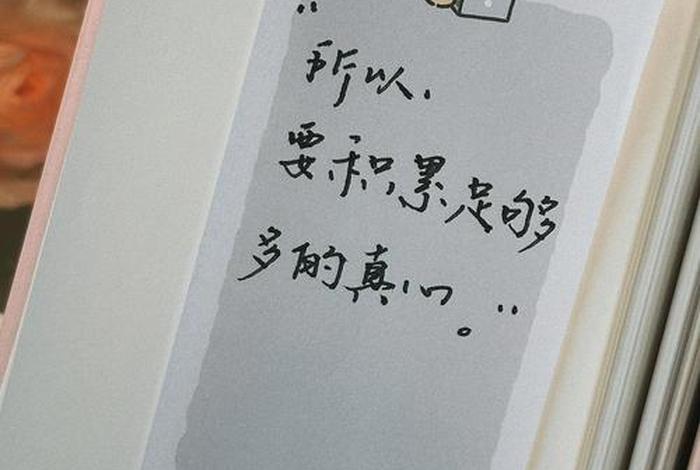 "所以,
要积累足够
多的真心。"